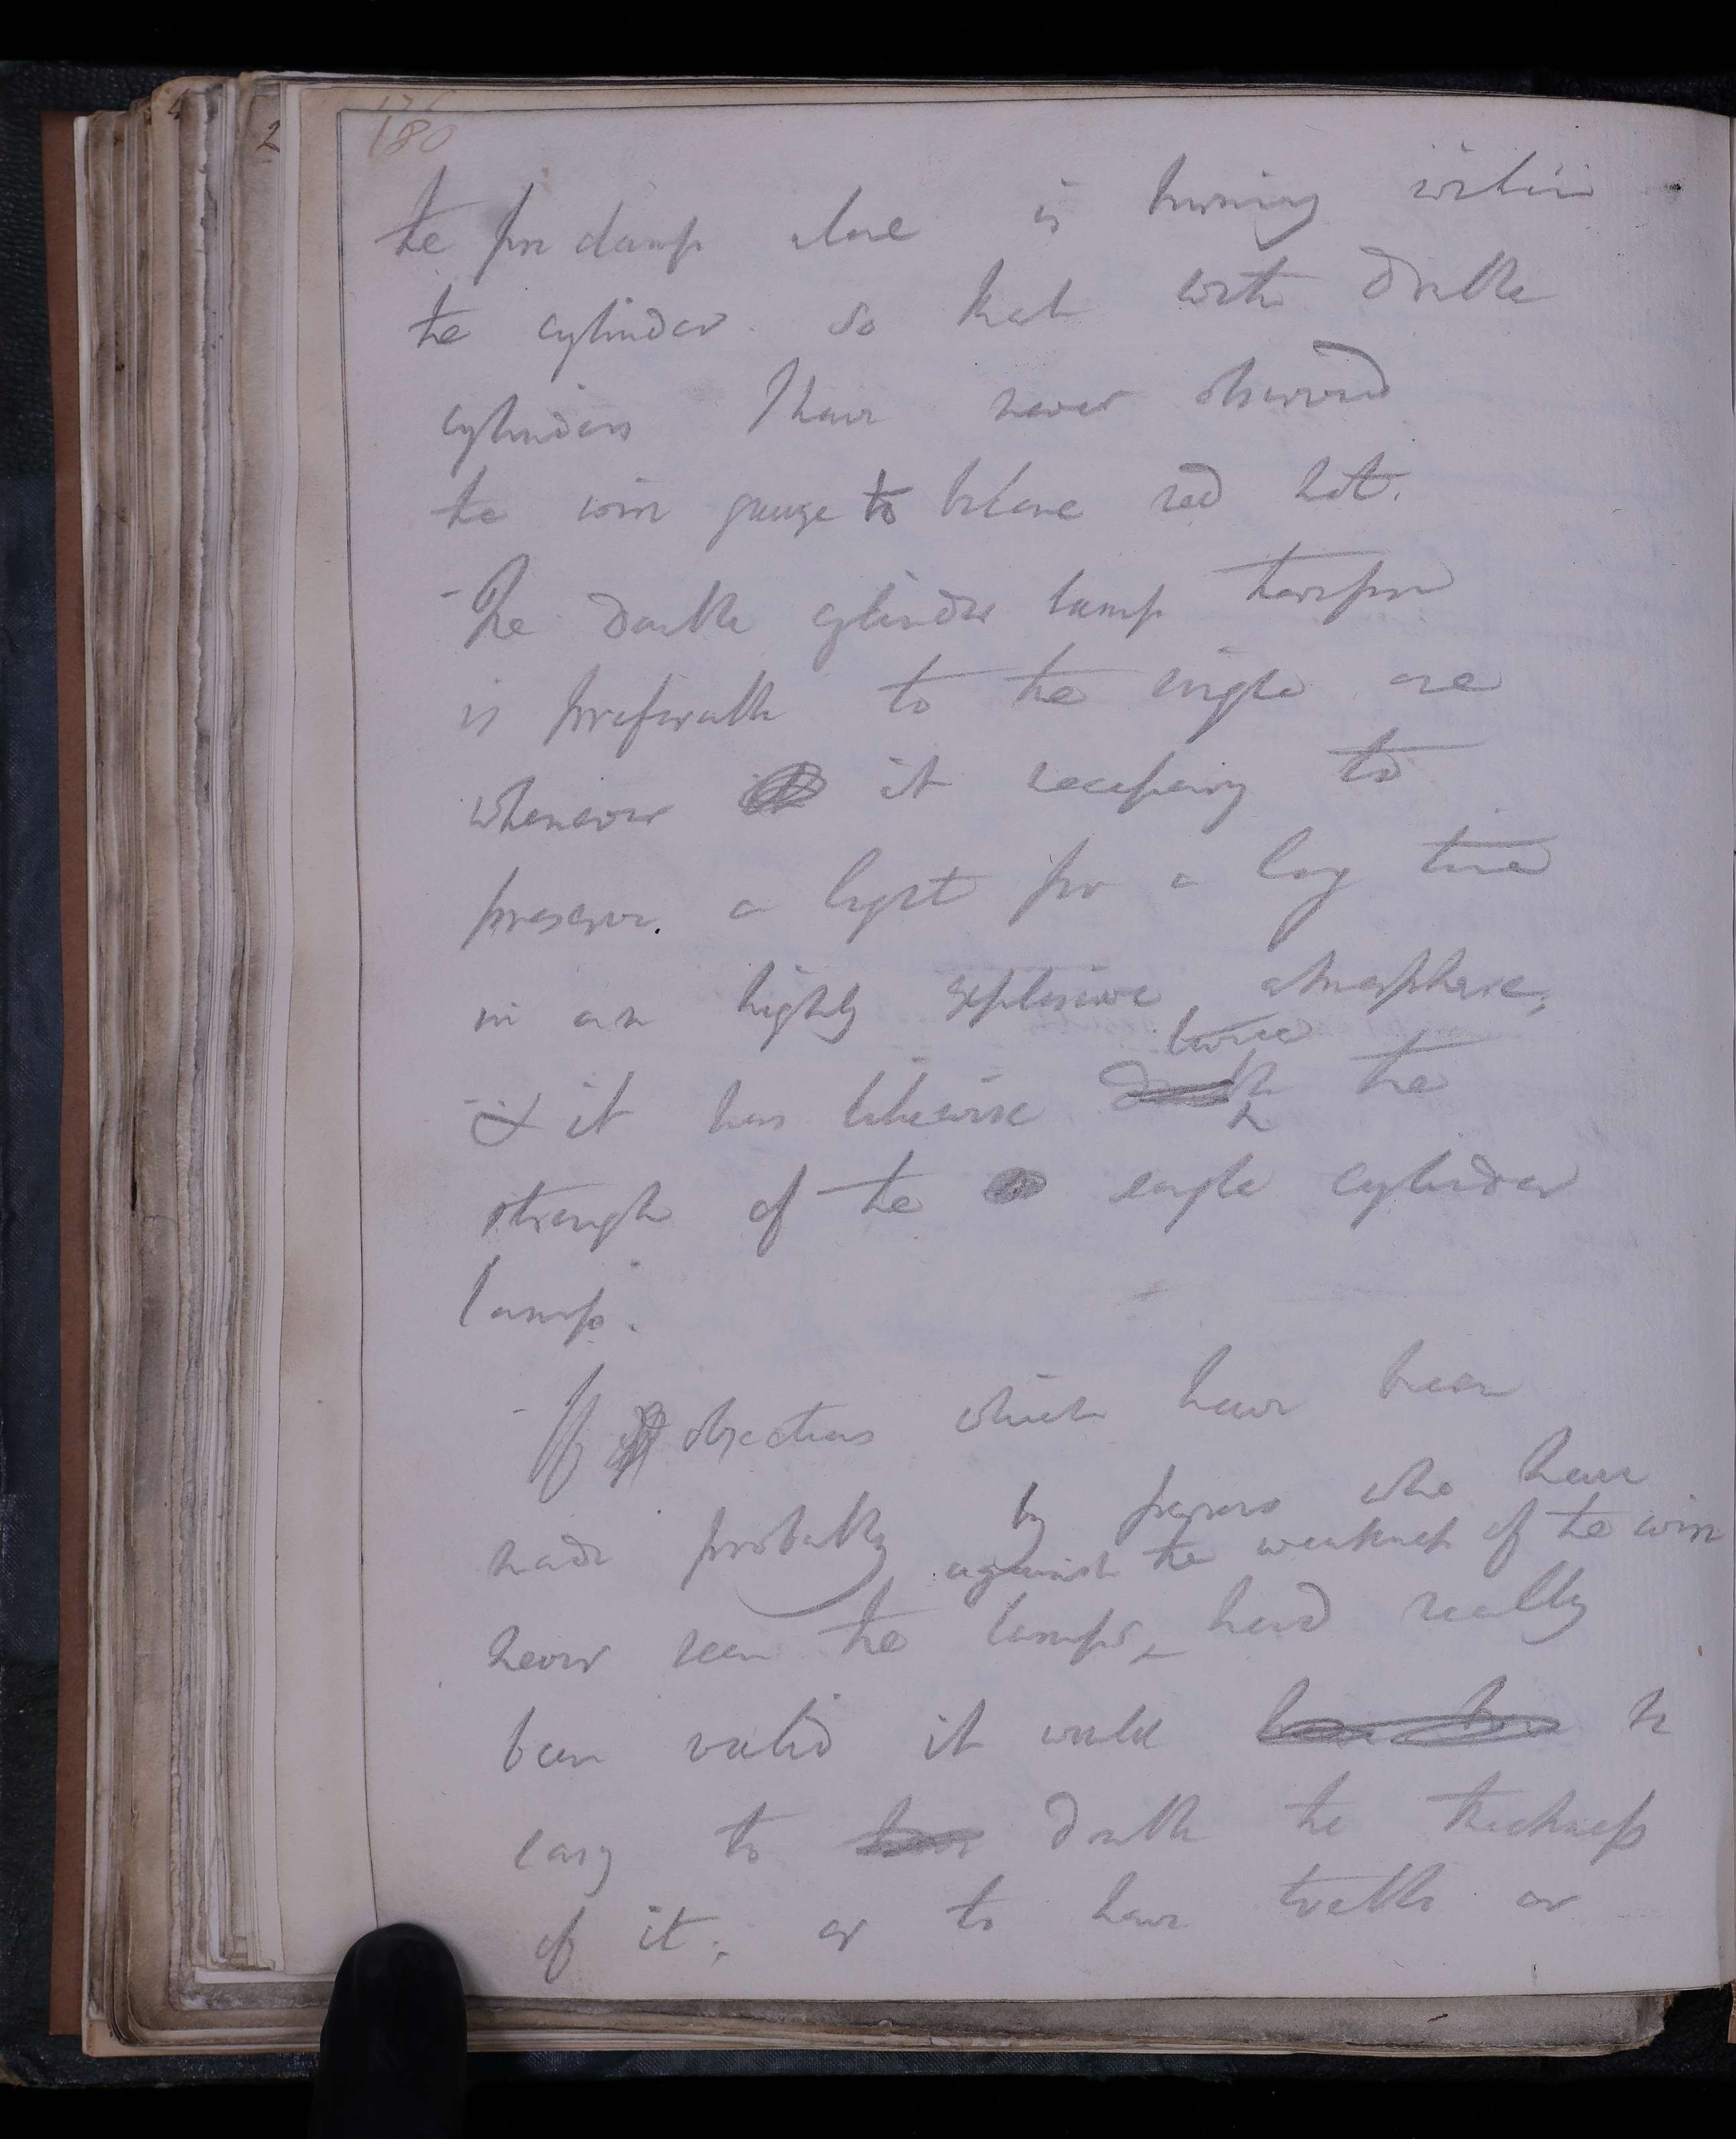 176
180
2
the fire damp alone is burning within
the cylinder. so that with double
cylinders I have never observed
the wire gauze to become red hot.
- The double cylinder lamp therefore
is preferable to the single one
whenever it necessary to
preserve. a light for a long time
in an highly explosive atmosphere;
twice
- & it has likewise double the
strength of the single cylinder
lamp.
- If objections which have been
made probably by persons who have
against the weakness of the wire
never seen the lamps, had really
been valid it would have been be
easy to have double the thickness
of it; or to have treble or